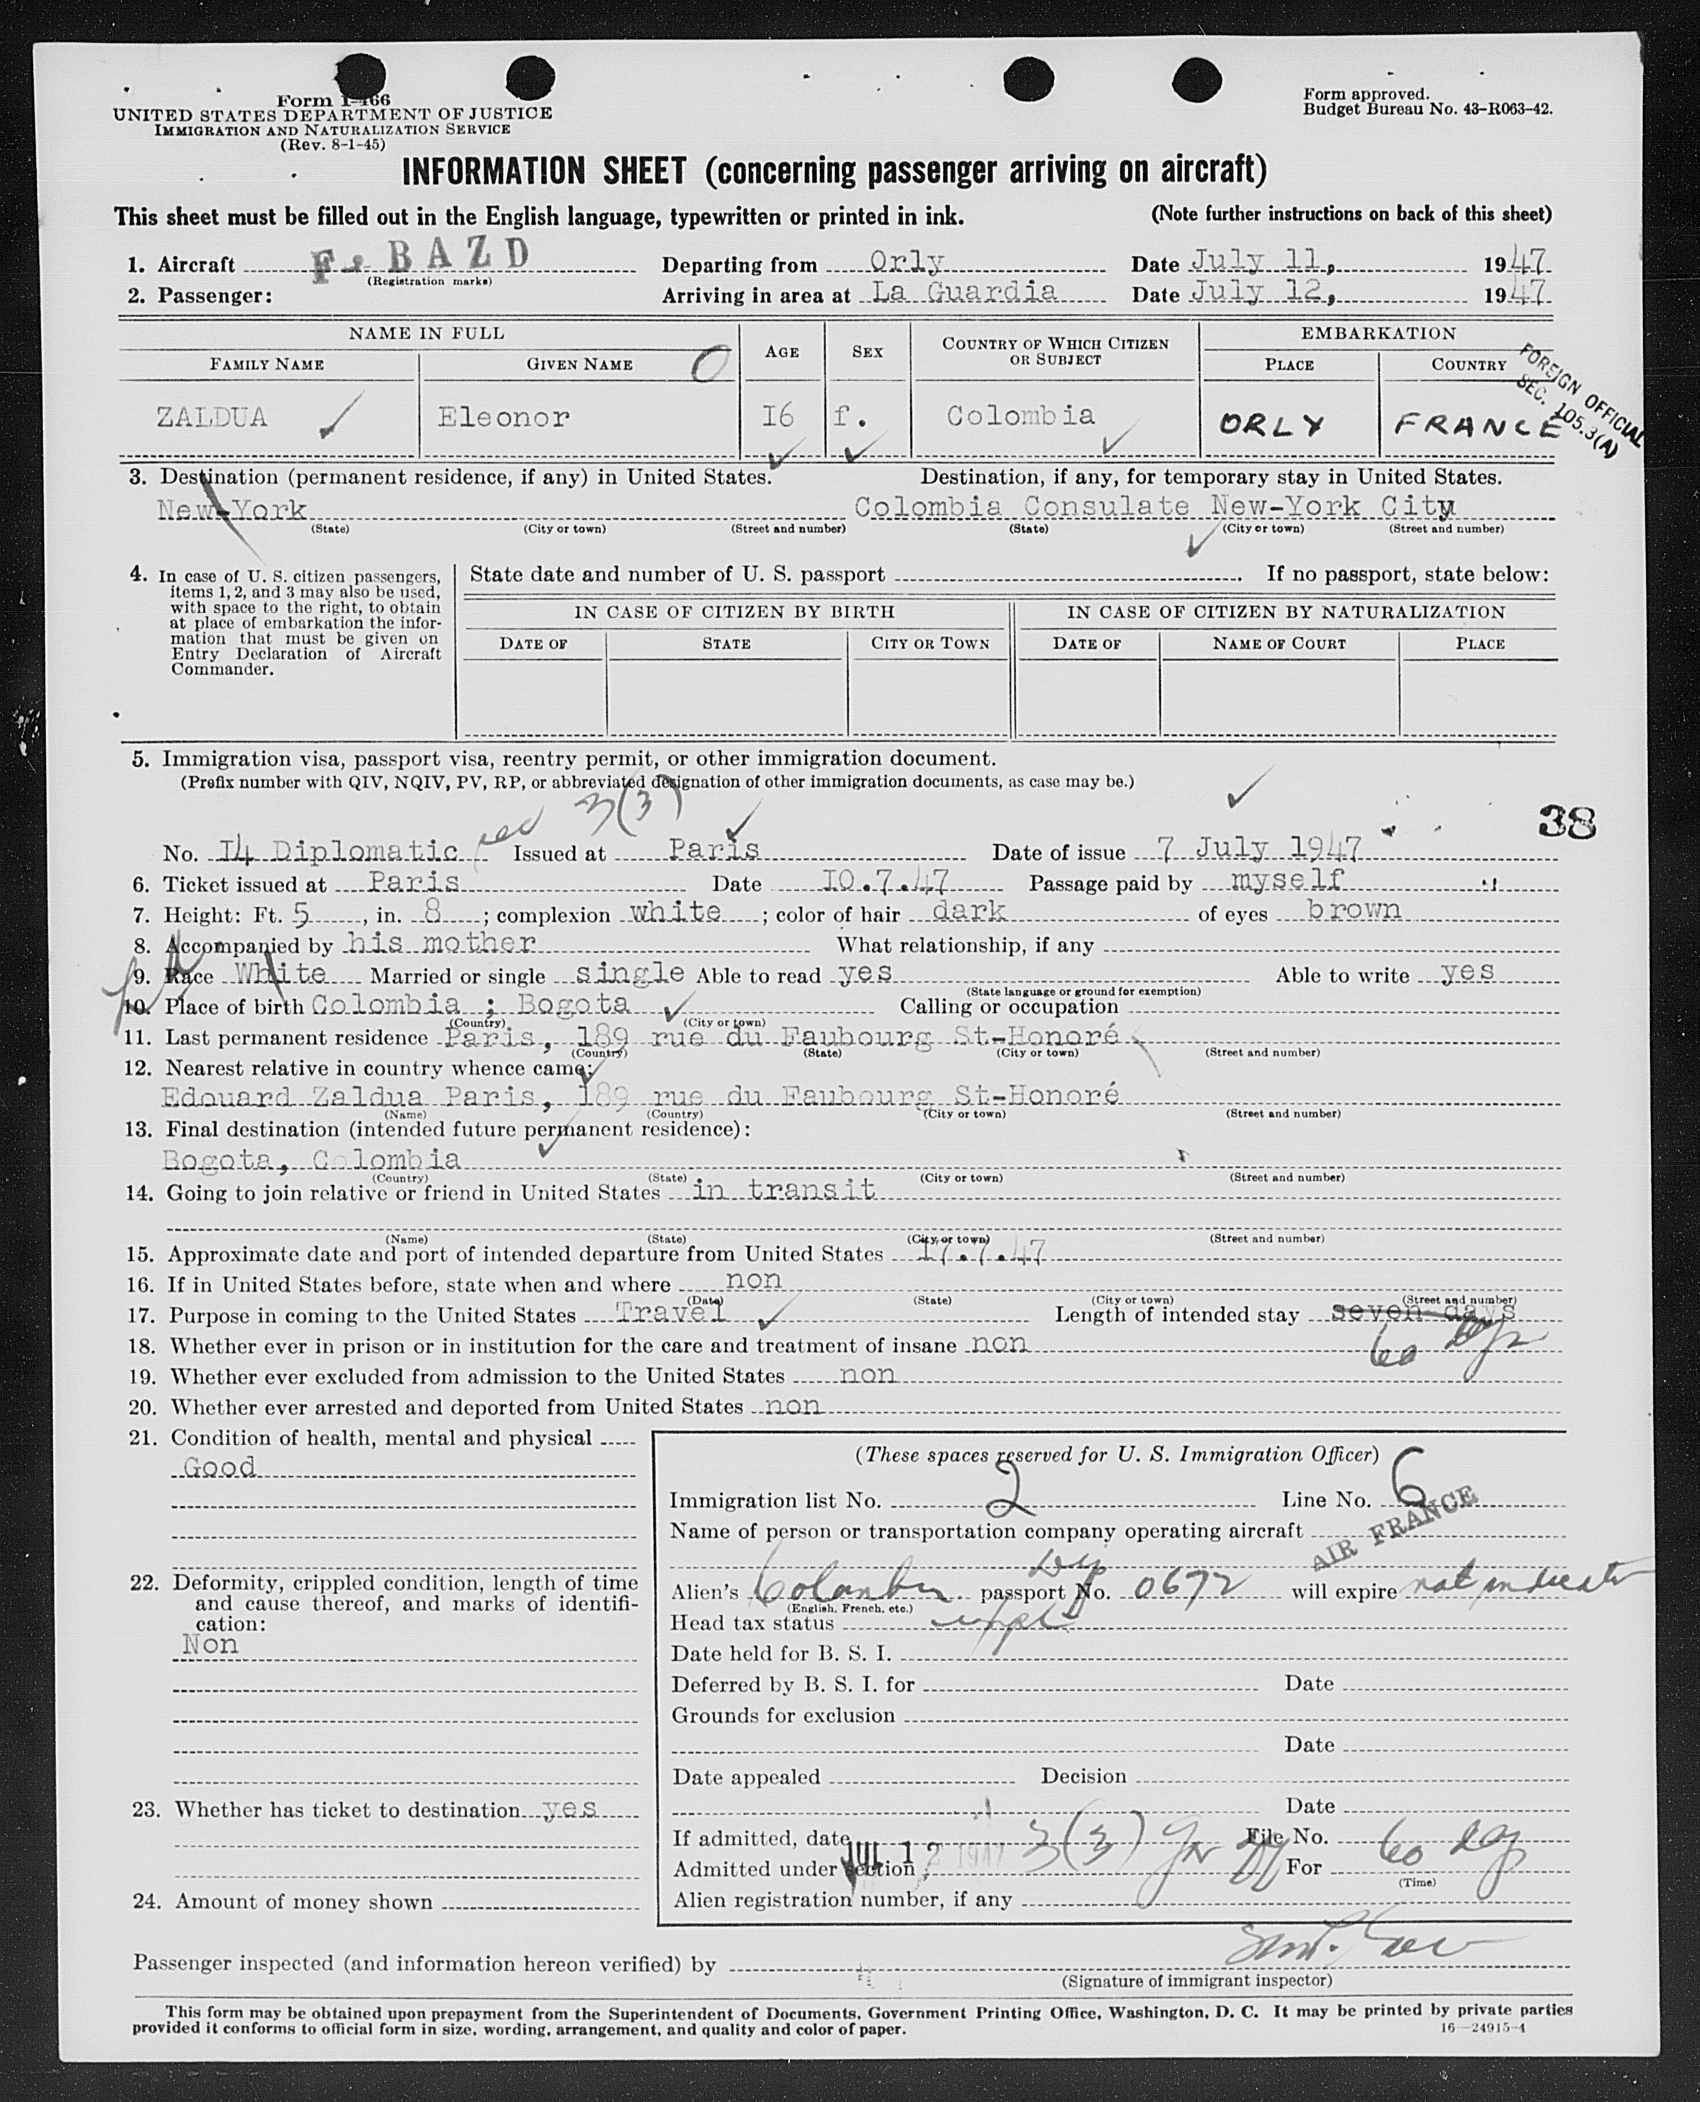 Form I-466
UNITED STATES DEPARTMENT OF JUSTICE
IMMIGRATION AND NATURALIZATION SERVICE
(Rev. 8-1-45)
Form approved.
Budget Bureau No. 43-R063-42.
INFORMATION SHEET (concerning passenger arriving on aircraft)
This sheet must be filled out in the English language, typewritten or printed in ink. (Note further instructions on back of this sheet)
1. Aircraft F. BAZD Departing from Orly Date July 11, 1947
(Registration marks)
2. Passenger: Arriving in area at La Guardia Date July 12, 1947
NAME IN FULL AGE SEX COUNTRY OF WHICH CITIZEN OR SUBJECT EMBARKATION
FAMILY NAME GIVEN NAME O PLACE COUNTRY
FOREIGN OFFICIAL
SEC. 105.3(A)
ZALDUA Eleonor I6 f. Colombia ORLY FRANCE
3. Destination (permanent residence, if any) in United States. Destination, if any, for temporary stay in United States.
New-York Colombia Consulate New-York City
(State) (City or town) (Street and number) (State) (City or town) (Street and number)
4. In case of U. S. citizen passengers, items 1, 2, and 3 may also be used, with space to the right, to obtain at place of embarkation the information that must be given on Entry Declaration of Aircraft Commander.
State date and number of U. S. passport . If no passport, state below:
IN CASE OF CITIZEN BY BIRTH IN CASE OF CITIZEN BY NATURALIZATION
DATE OF STATE CITY OR TOWN DATE OF NAME OF COURT PLACE
5. Immigration visa, passport visa, reentry permit, or other immigration document.
(Prefix number with QIV, NQIV, PV, RP, or abbreviated designation of other immigration documents, as case may be.)
3(3)
38
No. I4 Diplomatic Issued at Paris Date of issue 7 July 1947
6. Ticket issued at Paris Date IO.7.47 Passage paid by myself
7. Height: Ft. 5, in. 8; complexion white; color of hair dark of eyes brown
8. Accompanied by his mother What relationship, if any
9. Race White Married or single single Able to read yes Able to write yes
(State language or ground for exemption)
10. Place of birth Colombia ; Bogota Calling or occupation
(Country) (City or town)
11. Last permanent residence Paris, 189 rue du Faubourg St-Honoré
(Country) (State) (City or town) (Street and number)
12. Nearest relative in country whence came:
Edouard Zaldua Paris, 189 rue du Faubourg St-Honoré
(Name) (Country) (City or town) (Street and number)
13. Final destination (intended future permanent residence):
Bogota, Colombia
(Country) (State) (City or town) (Street and number)
14. Going to join relative or friend in United States in transit
(Name) (State) (City or town) (Street and number)
15. Approximate date and port of intended departure from United States 17.7.47
16. If in United States before, state when and where non
(Date) (State) (City or town) (Street and number)
17. Purpose in coming to the United States Travel Length of intended stay seven days
60 dys
18. Whether ever in prison or in institution for the care and treatment of insane non
19. Whether ever excluded from admission to the United States non
20. Whether ever arrested and deported from United States non
21. Condition of health, mental and physical
Good
22. Deformity, crippled condition, length of time and cause thereof, and marks of identification:
Non
23. Whether has ticket to destination yes
24. Amount of money shown
(These spaces reserved for U. S. Immigration Officer)
Immigration list No. 2 Line No. 6
Name of person or transportation company operating aircraft AIR FRANCE
Alien's Colombia passport No. 0672 will expire not indicated
(English, French, etc.)
Head tax status
Date held for B. S. I.
Deferred by B. S. I. for Date
Grounds for exclusion
Date
Date appealed Decision
Date
If admitted, date JUL 12 1947 File No.
Admitted under section 3(3) For 60 dys
(Time)
Alien registration number, if any
Passenger inspected (and information hereon verified) by
(Signature of immigrant inspector)
This form may be obtained upon prepayment from the Superintendent of Documents, Government Printing Office, Washington, D. C. It may be printed by private parties
provided it conforms to official form in size, wording, arrangement, and quality and color of paper.
16—24915-4